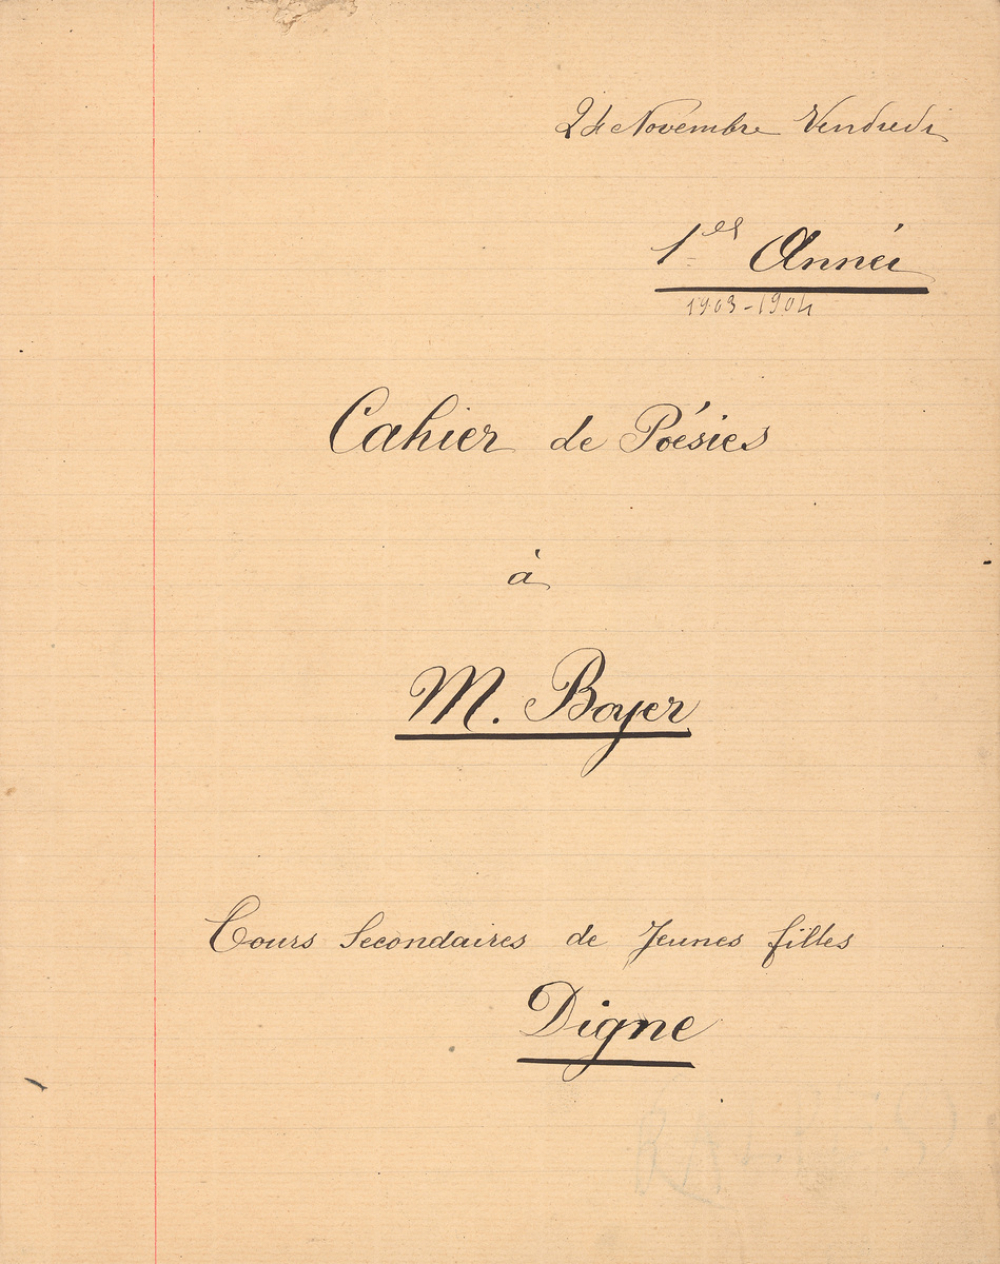 24 Novembre Vendredi
1es Année
1903-1904
Cahier de Poésies
à
M. Boyer
Cours Secondaires de Jeunes filles
Digne